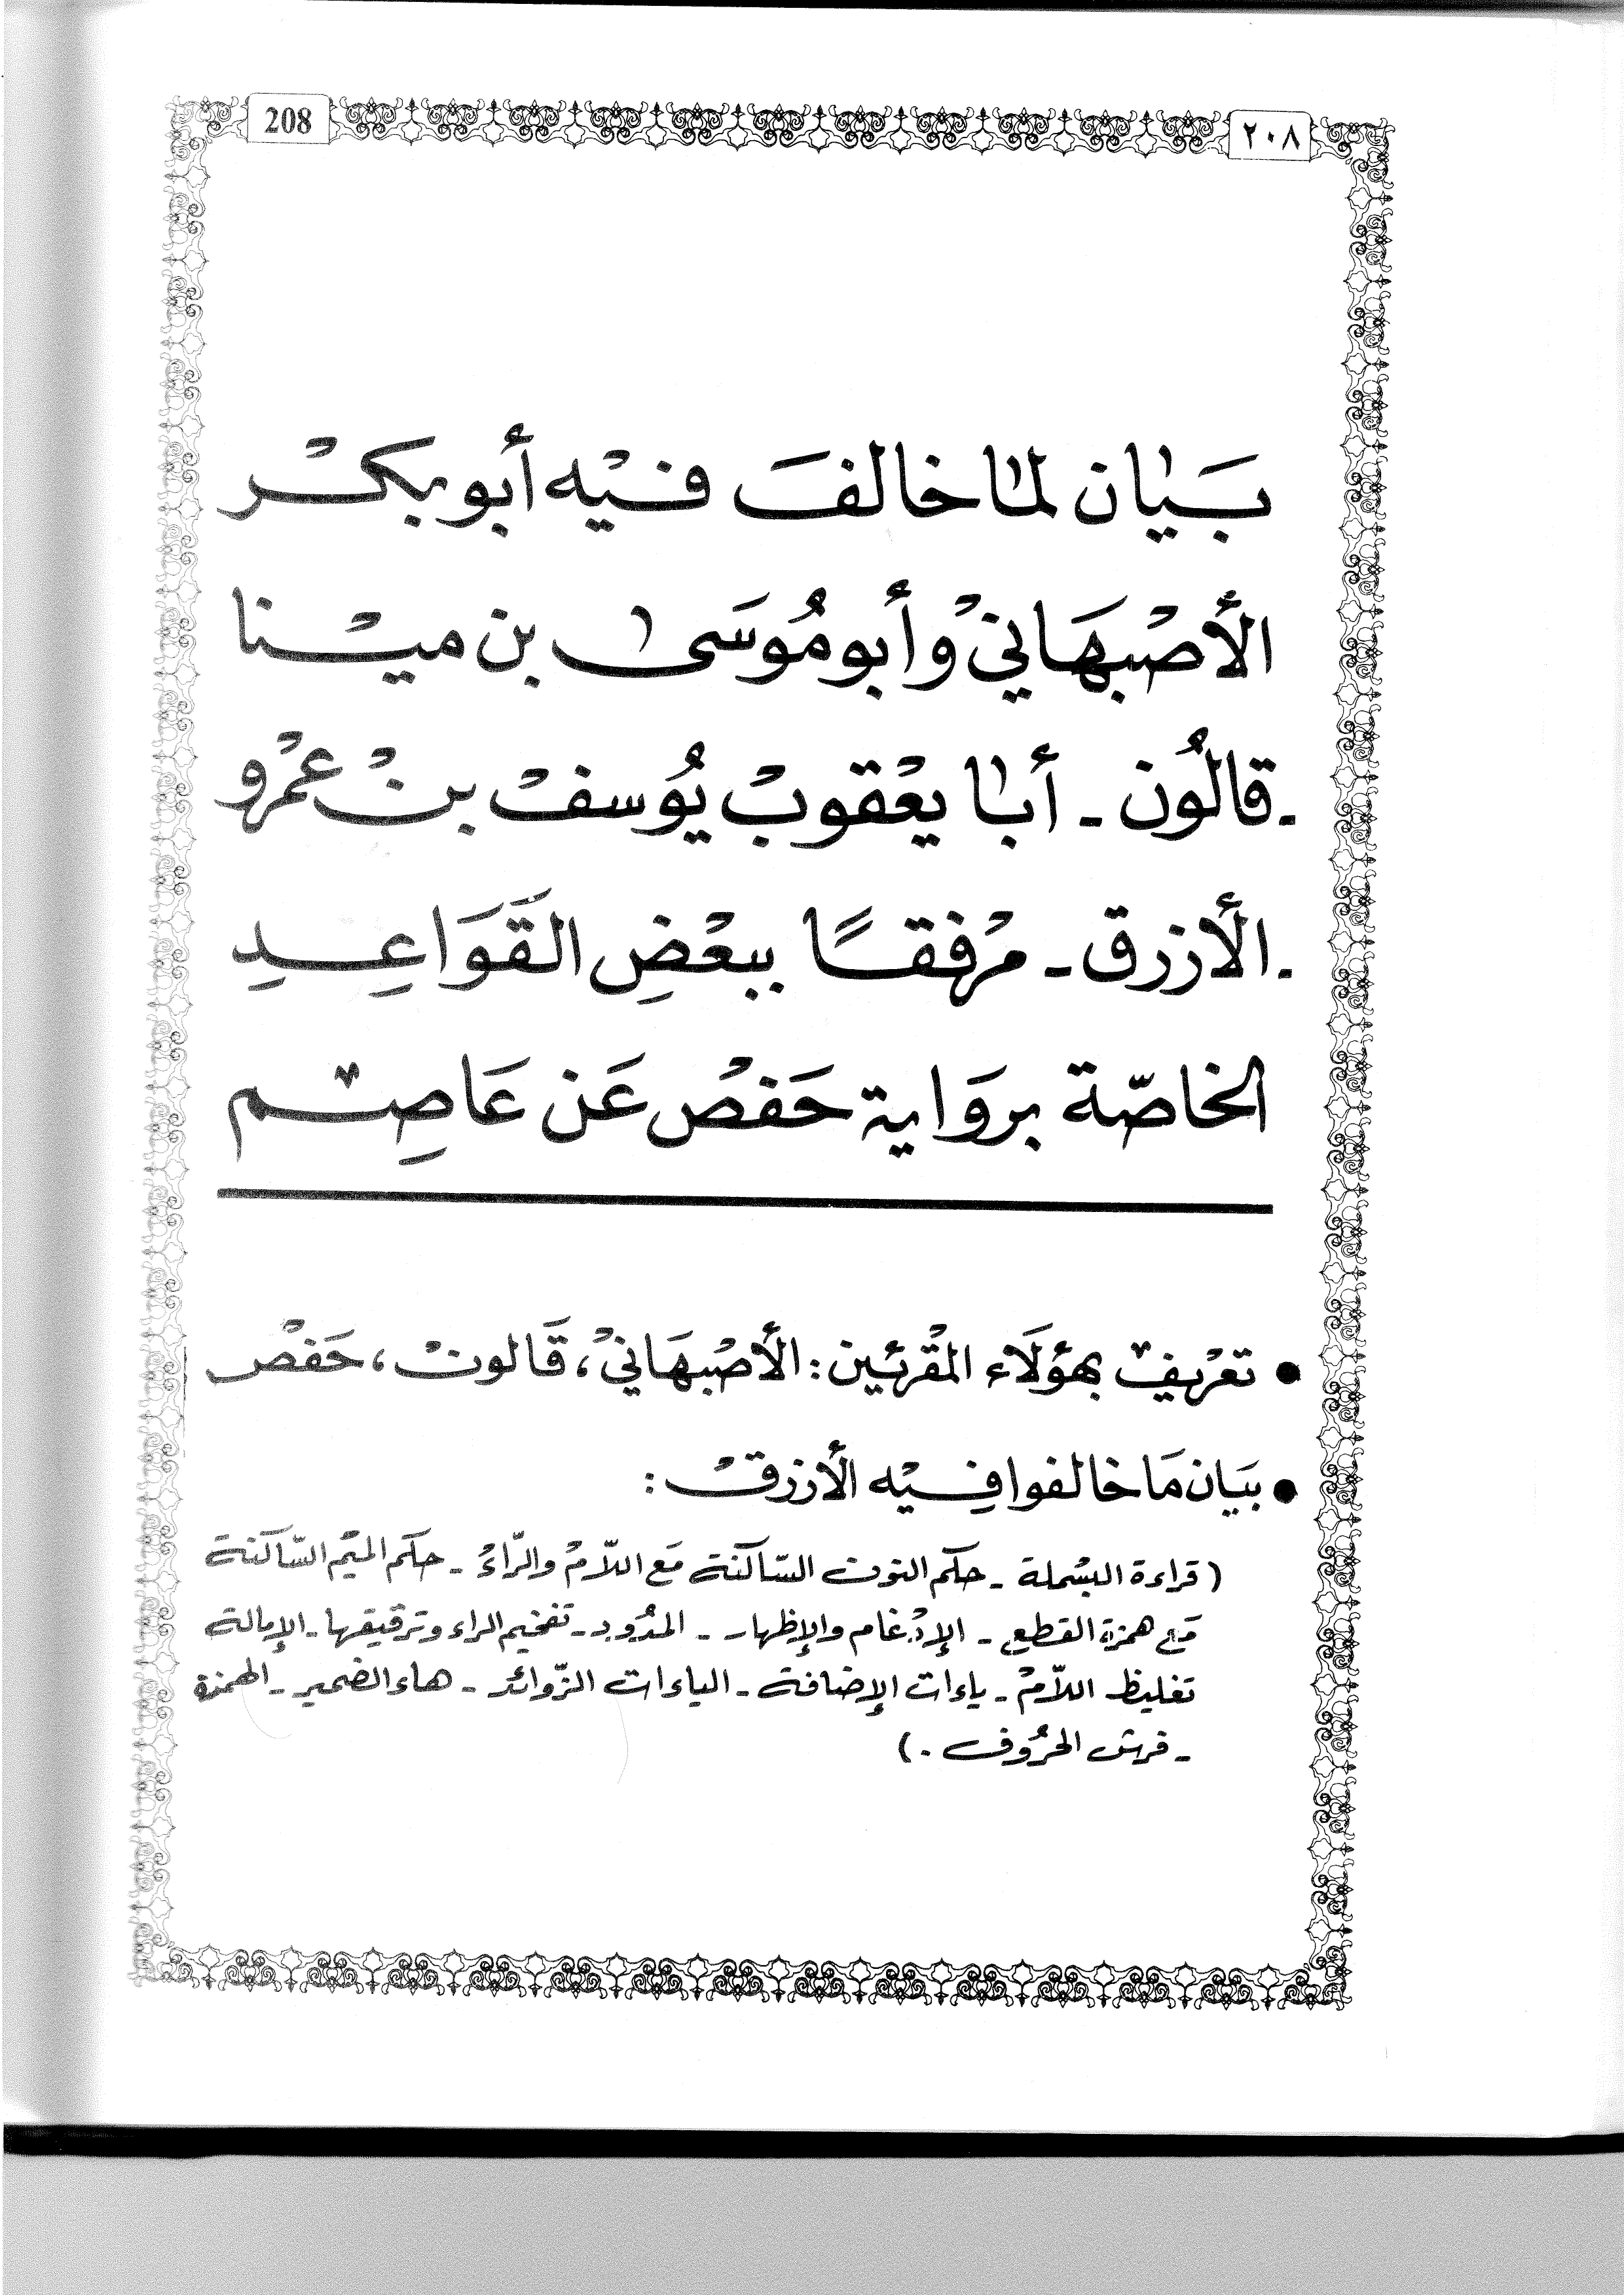 208
٢٠٨
بَيٰان لمٰا خالفَ فيْه أبو بكْر
الأصْبهَانيْ وأبو مُوسَىٰ بن ميْنا
ـ قالُون ـ أبٰا يعْقوبْ يُوسفْ بنْ عمْرو
ـ الأزرق ـ مرْفقًا ببعْضِ القَوَاعِدِ
الخاصّة برِوَاية حَفصْ عَن عَاصِم
● تعْريفٌ بهؤلَاء المقْرئين: الأصْبهَانيْ، قَالونْ، حَفصْ
● بيَان مَا خالفوا فيْه الأزرقْ:
( قراءة البسْملة ـ حكم النون السّاكنة مَع اللاّمْ والرّاءْ ـ حكم الميْم السّاكنة
مَع همزة القطع ـ الإدْغام والإظهار ـ المدُود ـ تفخيم الراء وترقيقها ـ الإمالة
تغليظ اللاّمْ ـ ياءات الإضافة ـ الياءات الزّوائد ـ هاء الضمير ـ الهمزة
ـ فرش الحرُوف . )